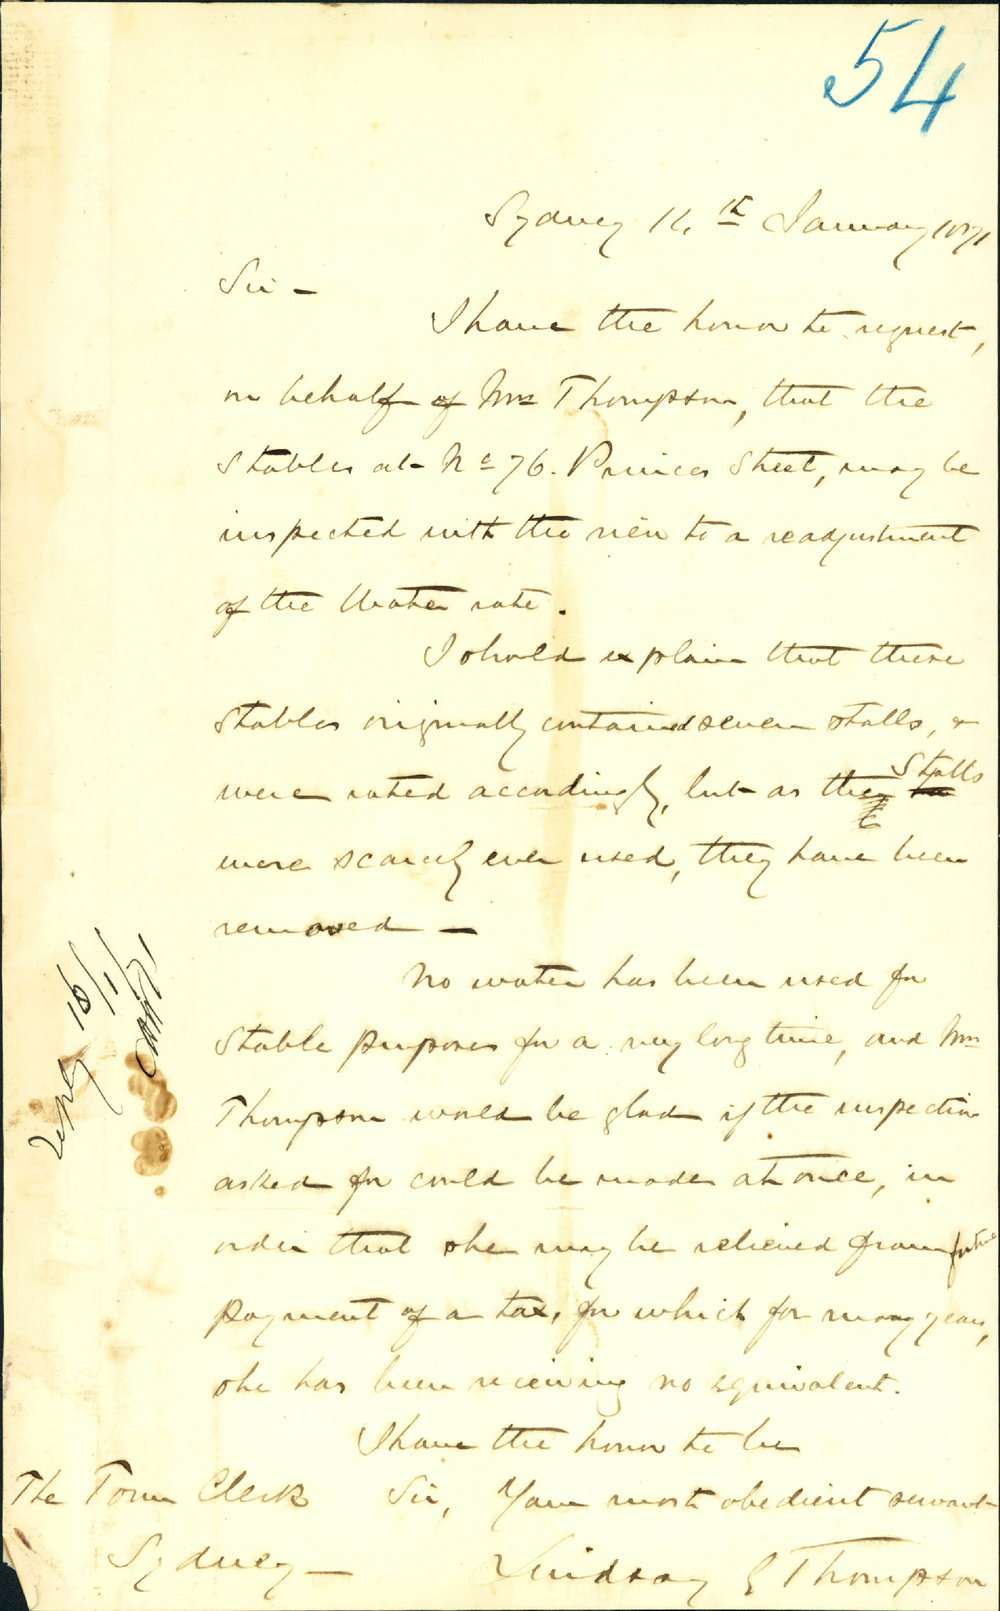 54
Sydney 11.th January 1871
Sir -
I have the honor to request,
on behalf of Mrs Thompson, that the
Stables at No 76. Princes Street, may be
inspected with the view to a readjustment
of the Water rate.
I should explain that these
Stables originally contained seven stalls, &
were rated accordingly, but as the Stalls
were scarcely ever used, they have been
removed -
No water has been used for
Stable purposes for a very long time, and Mrs
Thompson would be glad if the inspection
asked for could be made at once, in
order that she may be relieved from further
payment of a tax, for which for many years,
she has been receiving no equivalent.
I have the honor to be
Sir, Your most obedient servant
Lindsay G Thompson
The Town Clerk
Sydney -
16/1/